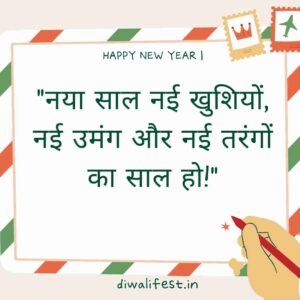 HAPPY NEW YEAR |
"नया साल नई खुशियों,
नई उमंग और नई तरंगों
का साल हो!"
diwalifest.in